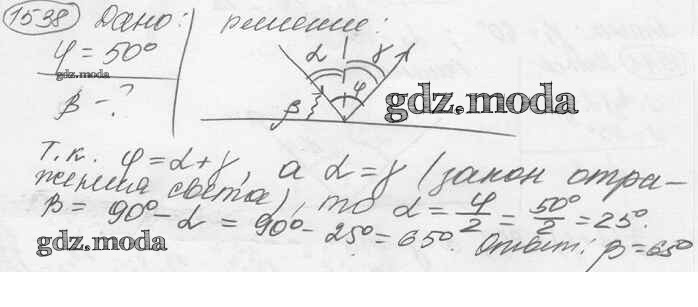 1538 Дано: решение:
φ = 50°
gdz.moda
β - ?
α γ
β φ
gdz.moda
т.к. φ = α + γ, а α = γ (закон отра-
жения света), то α = φ/2 = 50°/2 = 25°.
β = 90° - α = 90° - 25° = 65°. Ответ: β = 65°
gdz.moda